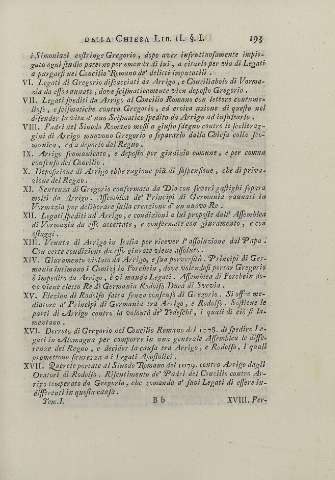 DALLA CHIESA LIB. II. §. I. 193
i Simoniaci costringe Gregorio, dopo aver infruttuosamente impie-
gato ogni studio paterno per amor di lui, a citarlo per via di Legati
a purgarsi nel Concilio Romano de' delitti imputatili.
VI. Legati di Gregorio discacciati da Arrigo, e Conciliabolo di Vorma-
zia da esso adunato, dove scismaticamente vien deposto Gregorio.
VII. Legati spediti da Arrigo al Concilio Romano con lettere contume-
liose, e scismatiche contro Gregorio, ed eroica azione di questo nel
defender la vita d'uno Scismatico spedito da Arrigo ad insultarlo.
VIII. Padri del Sinodo Romano mossi a giusto sdegno contro le scellerag-
gini di Arrigo muovono Gregorio a separarlo dalla Chiesa colla sco-
munica, ed a deporlo dal Regno.
IX. Arrigo scomunicato, e deposto per giudizio comune, e per comun
consenso del Concilio.
X. Deposizione di Arrigo ebbe ragione più di sospensione, che di priva-
zione del Regno.
XI. Sentenza di Gregorio confermata da Dio con severi gastighi sopra
molti da Arrigo. Assemblea de' Principi di Germania radunata in
Vormazia per deliberare sulla creazione d'un nuovo Re.
XII. Legati spediti ad Arrigo, e condizioni a lui proposte dall' Assemblea
di Vormazia da esso accettate, e confermate con giuramento, e con
ostaggi.
XIII. Venuta di Arrigo in Italia per ricever l'assoluzione dal Papa.
Con certe condizioni da esso giurate viene assoluto.
XIV. Giuramento violato da Arrigo, e sua perversità. Principi di Ger-
mania intimano i Comizj in Forcheim, dove volendosi portar Gregorio
è impedito da Arrigo, e vi manda Legati. Assemblea di Forcheim do-
ve viene eletto Re di Germania Rodolfo Duca di Svevia.
XV. Elezion di Rodolfo fatta senza consenso di Gregorio. Si offre me-
diatore a' Principi di Germania tra Arrigo, e Rodolfo. Sostiene le
parti di Arrigo contro la volontà de' Tedeschi, i quali di ciò si la-
mentano.
XVI. Decreto di Gregorio nel Concilio Romano del 1078. di spedire Le-
gati in Alemagna per comporre in una generale Assemblea le diffe-
renze del Regno, e decider la causa tra Arrigo, e Rodolfo, i quali
promettono sicurezza ai Legati Apostolici.
XVII. Querele portate al Sinodo Romano del 1079. contro Arrigo dagli
Oratori di Rodolfo. Risentimento de' Padri del Concilio contro Ar-
rigo temperato da Gregorio, che comanda a' suoi Legati di essere in-
differenti in questa causa.
Tom. I. B b XVIII. Per-